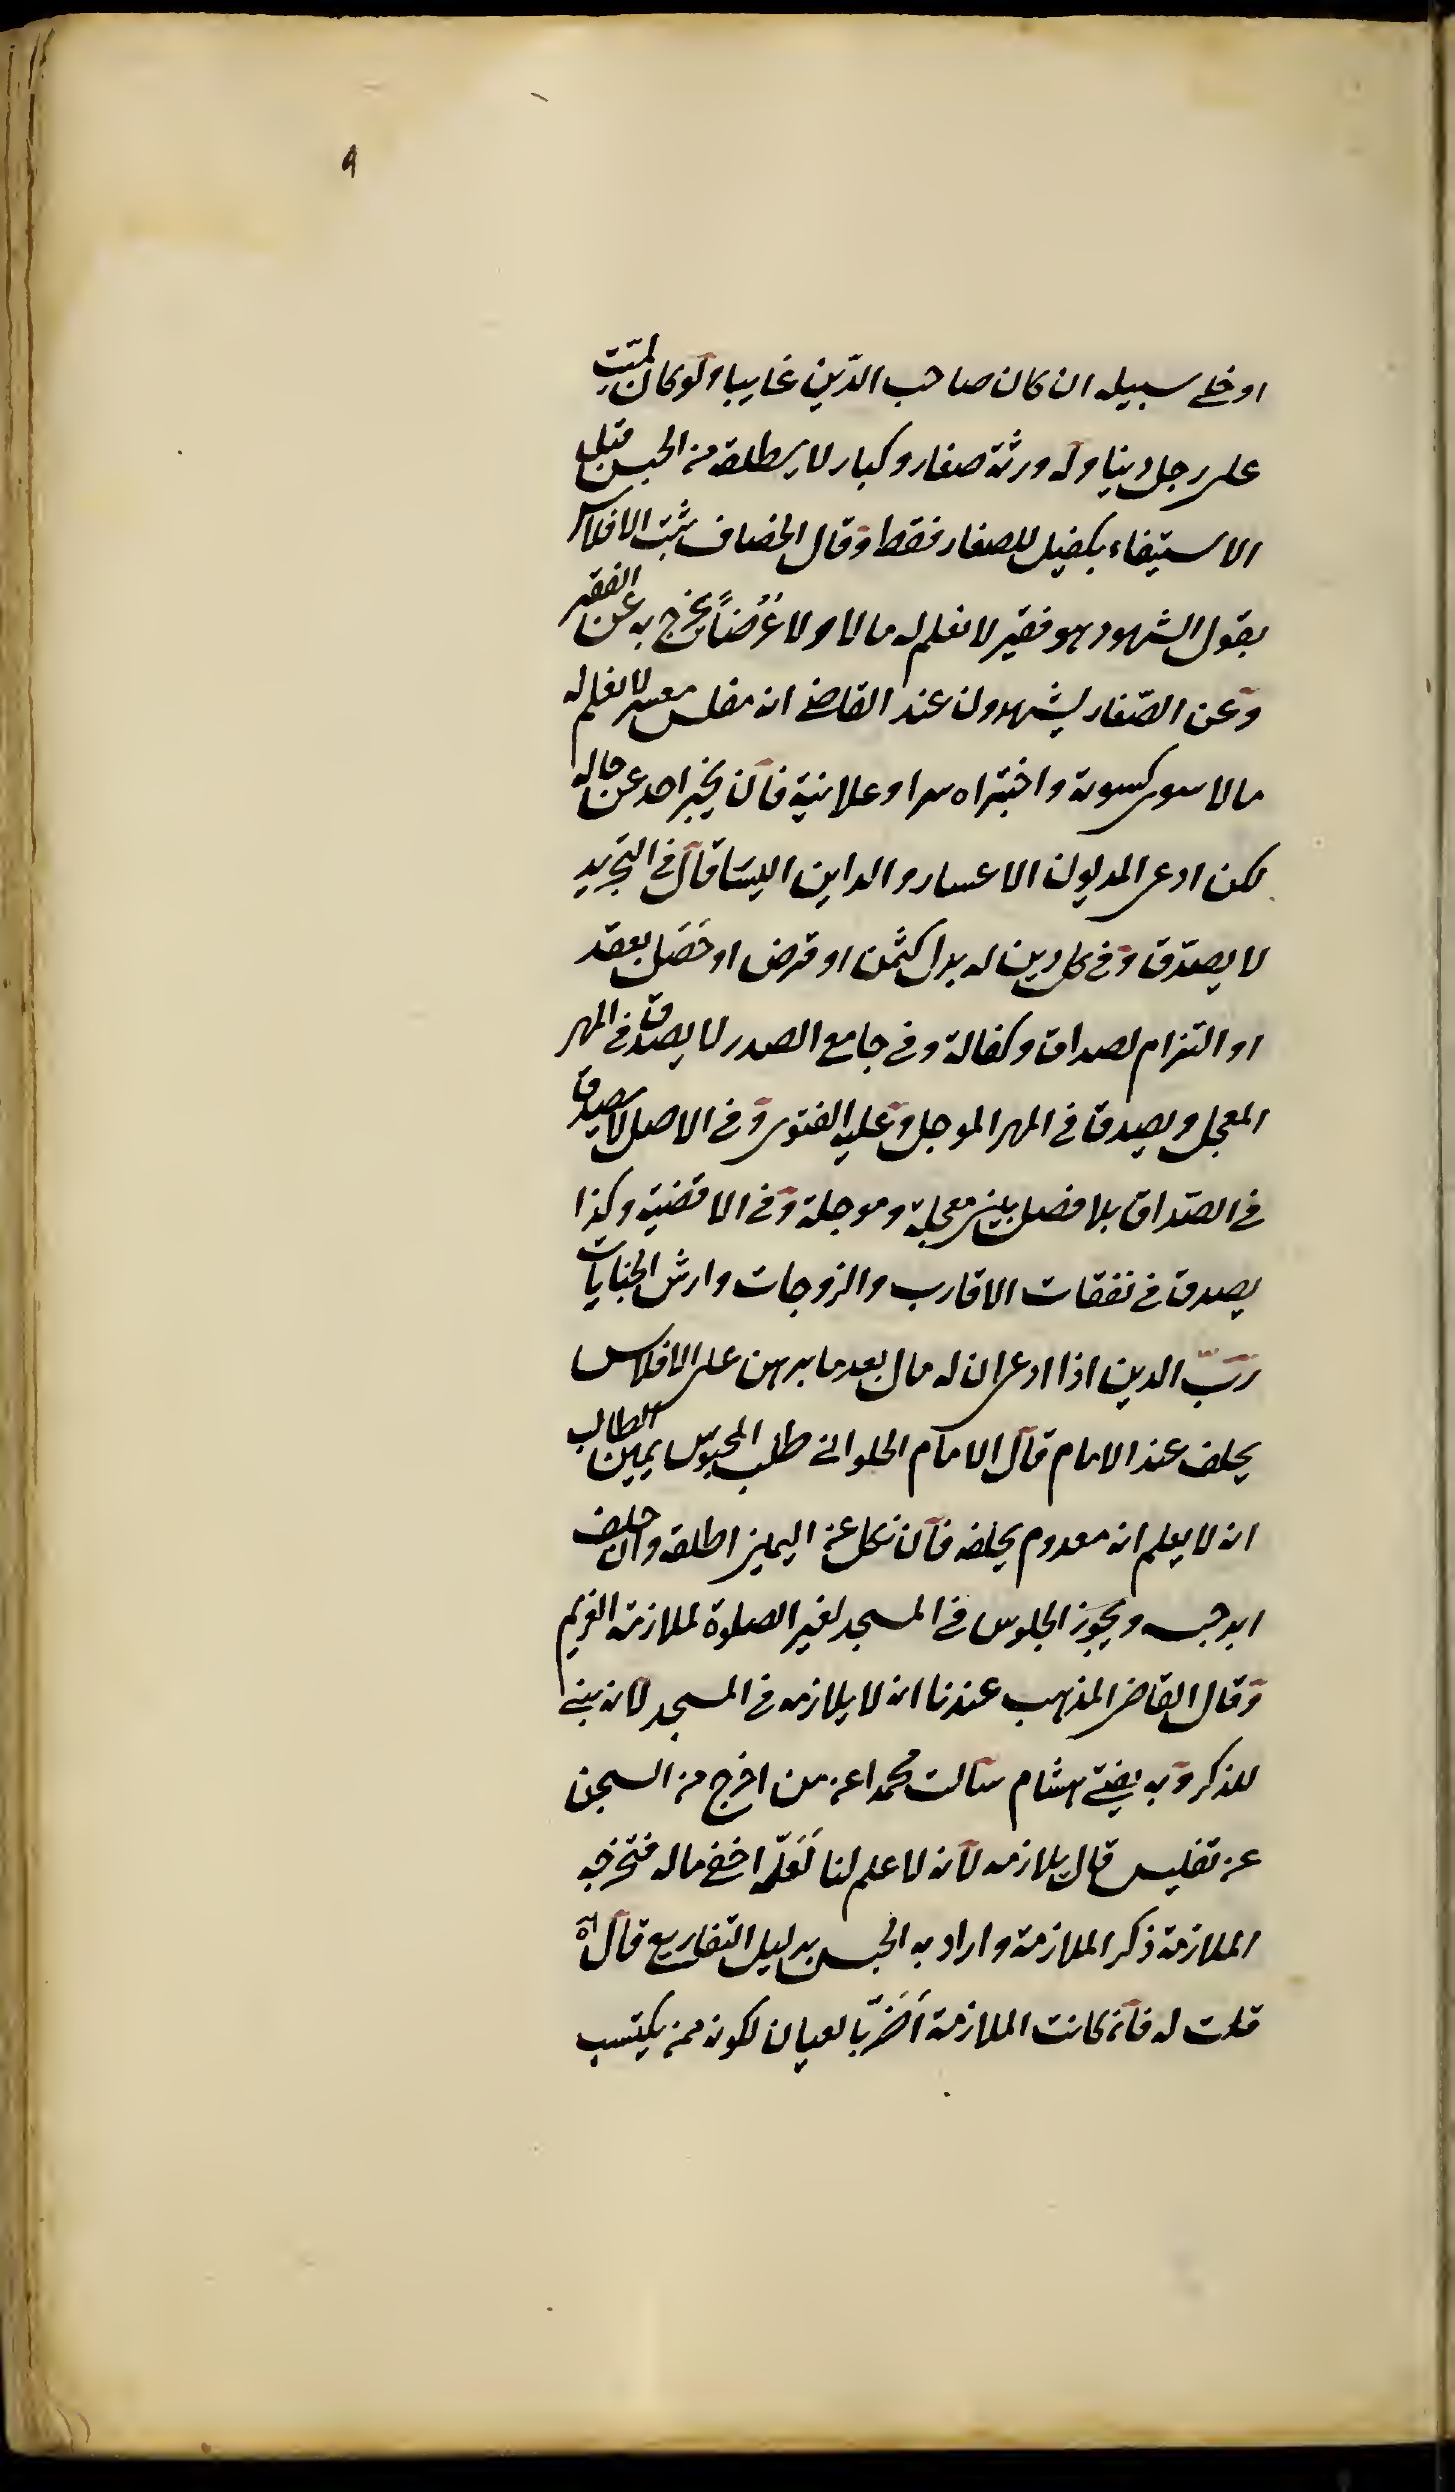 ٩
او خلى سبيله ان كان صاحب الدّين غايبا ولو كان لميّت
على رجل دينا وله ورثة صغار وكبار لا يطلقه من الحبس قبل
الاستيفاء بكفيل للصغار فقط وقال الخصاف يثبت الافلاس
بقول الشهود هو فقير لا نعلم له مالا ولا عَرَضاً يخرج به عن الفقير
وعن الصّفار يشهدون عند القاضي انه مفلس معسر لا نعلم له
مالا سوى كسوته واختبراه سرا وعلانية فان يخبر احد عن حاله
لكن ادعى المديون الاعسار والداين اليسَار قال في التجريد
لا يصدّق وفى كل دين له بدل كثمن او قرض او حَصَل بعقد
او التزام لصداق وكفالة وفي جامع الصدر لا يصدّق في المهر
المعجل ويصدق في المهر الموجل وعليه الفتوى وفى الاصل لا يصدق
في الصّداق بلا فصل بين معجله وموجله وفى الاقضية وكذا
يصدق في نفقات الاقارب والزوجات وارش الجنايات
ربّ الدين اذا ادعى ان له مال بعد ما برهن على الافلاس
يحلف عند الامام قال الامام الحلوانى طلب المحبوس يمين الطالب
انه لا يعلم انه معدوم يحلفه فان نكل عن اليمين اطلقه وان حلف
ابد حبسه ويجوز الجلوس في المسجد لغير الصلوة لملازمة الغريم
وقال القاضى المذهب عندنا انه لا يلازمه في المسجد لانه بنى
للذكر وبه يفتى هشام سالت محمدا عن من اخرج من السجن
عن تفليس قال يلازمه لانه لا علم لنا لَعَلّه اخفى ماله فتخرجه
الملازمة ذكر الملازمة واراد به الحبس بدليل التفاريع قال انه
قلت له فان كانت الملازمة اَضَرّ بالعيال لكونه ممن يكتسب